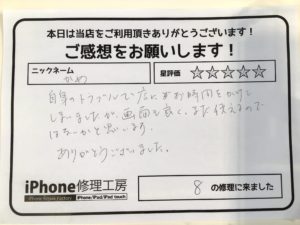 本日は当店をご利用頂きありがとうございます!
ご感想をお願いします!
ニックネーム
かめ
星評価 ☆☆☆☆☆
自身のトラブルで店にお時間をかけて
しまいましたが、画面も良く、まだ使えるので
はないかと思います。
ありがとうございました。
iPhone修理工房
iPhone Repair Factory iPhone/iPad/iPod touch
8 の修理に来ました